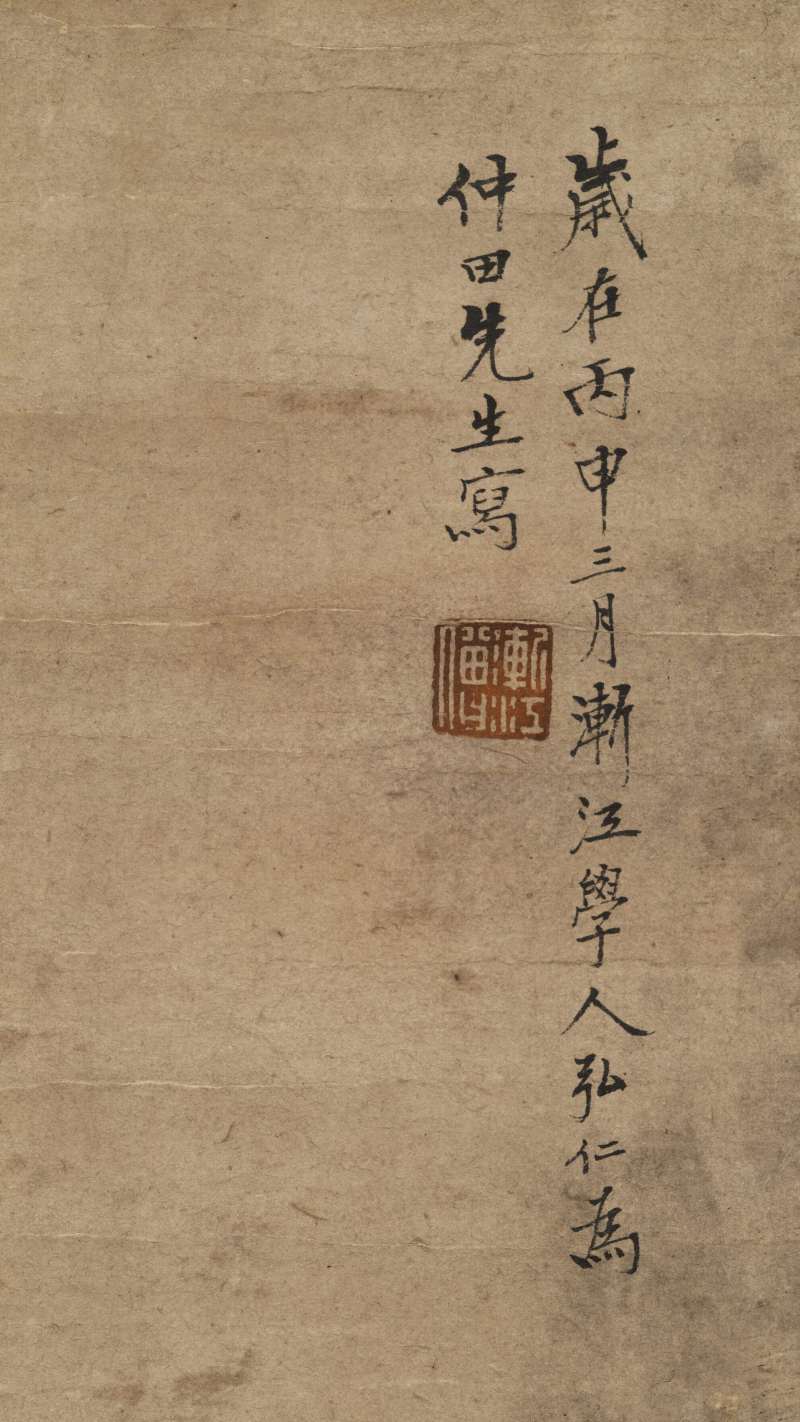 歲在丙申三月漸江學人弘仁為
仲田先生寫
漸江